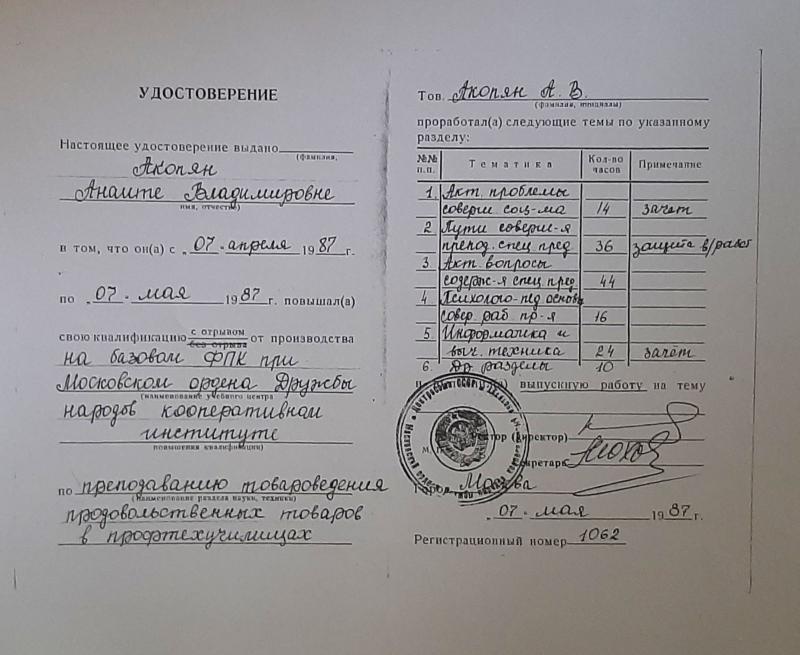 УДОСТОВЕРЕНИЕ
Настоящее удостоверение выдано
(фамилия,
Акопян
Анаите Владимировне
имя, отчество)
в том, что он(а) с „07“ апреля 1987 г.
по „07“ мая 1987 г. повышал(а)
свою квалификацию с отрывом без отрыва от производства
на базовом ФПК при
Московском ордена Дружбы
(наименование учебного центра
народов кооперативном
институте
повышения квалификации)
по преподаванию товароведения
(наименование раздела науки, техники)
продовольственных товаров
в профтехучилищах
Тов. Акопян А. В.
(фамилия, инициалы)
проработал(а) следующие темы по указанному
разделу:
№№ п.п. Тематика Кол-во часов Примечание
1. Акт. проблемы
соверш соц-ма 14 зачет
2. Пути соверш-я
препод. спец пред 36 защита в/работ
3. Акт. вопросы
содерж-я спец. пред 44
4. Психолого-пед основы
совер. раб пр-я 16
5. Информатика и
выч. техника 24 зачёт
6. Др разделы 10
выпускную работу на тему
Ректор (директор)
М.
Секретарь
Город Москва
„07“ мая 1987 г.
Регистрационный номер 1062